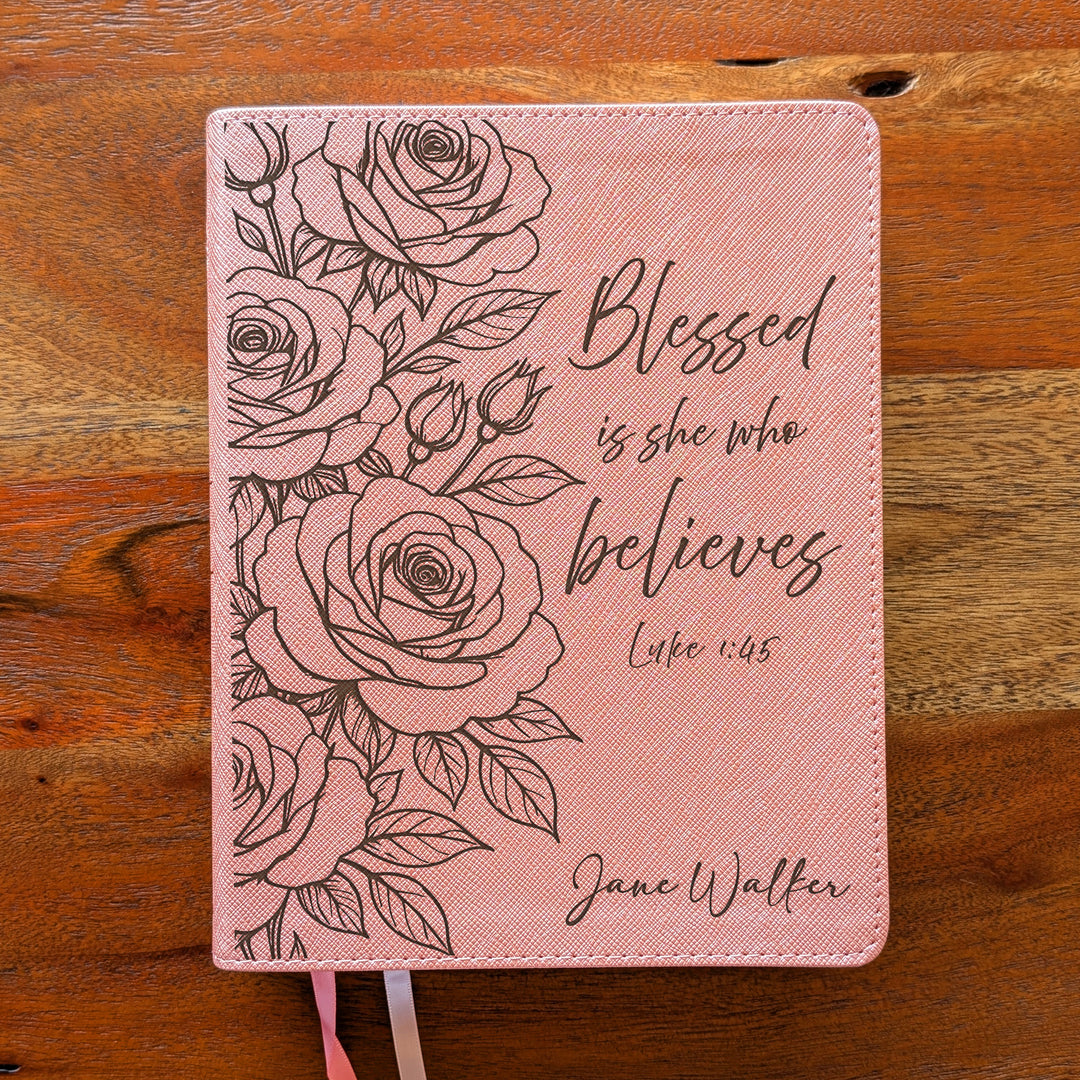 Blessed
is she who
believes
Luke 1:45
Jane Walker